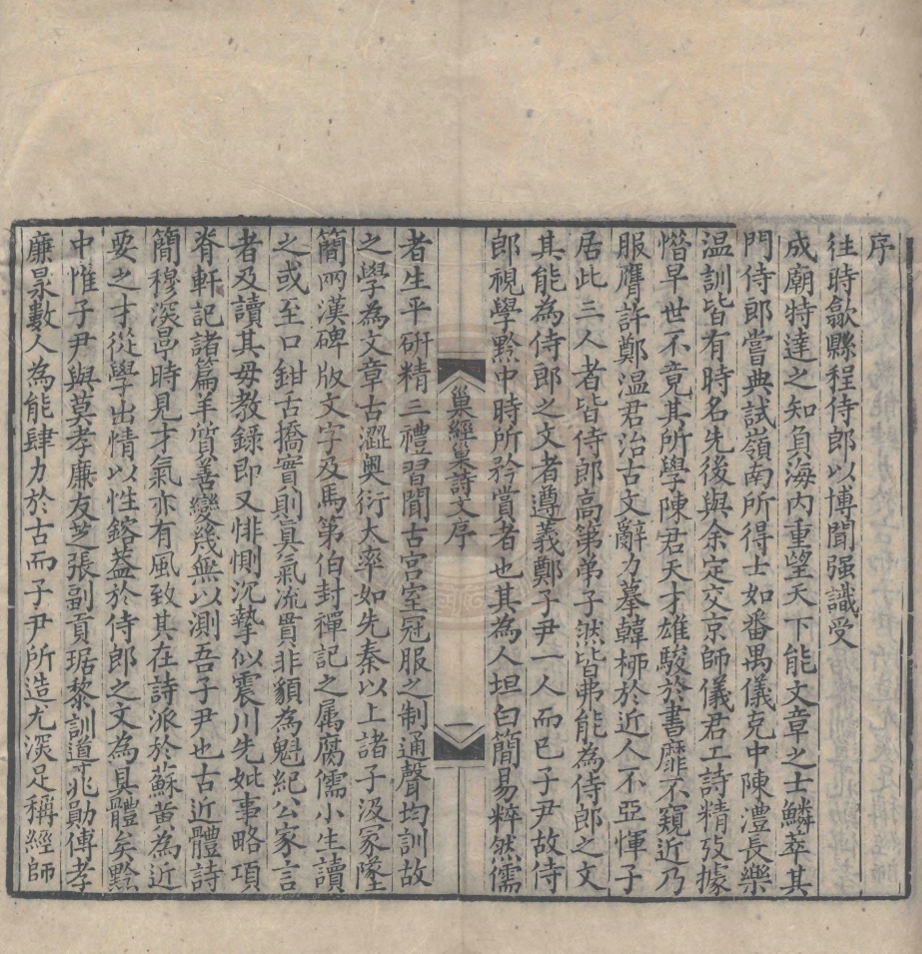 序
往時歙縣程侍郎以博聞强識受
成廟特達之知負海内重望天下能文章之士鱗萃其
門侍郎嘗典試嶺南所得士如番禺儀克中陳澧長樂
温訓皆有時名先後與余定交京師儀君工詩精攷據
惜早世不竟其所學陳君天才雄駿於書靡不窺近乃
服膺許鄭温君治古文辭力摹韓栁於近人不亞惲子
居此三人者皆侍郎高第弟子然皆弗能為侍郎之文
其能為侍郎之文者遵義鄭子尹一人而已子尹故侍
郎視學黔中時所矜賞者也其為人坦白簡易粹然儒
巢經巢詩文序
一
者生平硏精三禮習聞古宫室冠服之制通聲均訓故
之學為文章古澀奥衍大率如先秦以上諸子汲冢墜
簡兩漢碑版文字及馬第伯封禪記之属腐儒小生讀
之或至口鉗舌撟實則真氣流貫非貌為魁紀公家言
者及讀其毋教錄即又悱惻沉摯似震川先妣事略項
脊軒記諸篇羊質善變幾無以測吾子尹也古近體詩
簡穆深峕時見才氣亦有風致其在詩派於蘇黄為近
要之才從學出情以性鎔葢於侍郎之文為具體矣黔
中惟子尹與莫孝廉友芝張副貢琚黎訓導兆勛傅孝
廉昶數人為能肆力於古而子尹所造尤深足稱經師